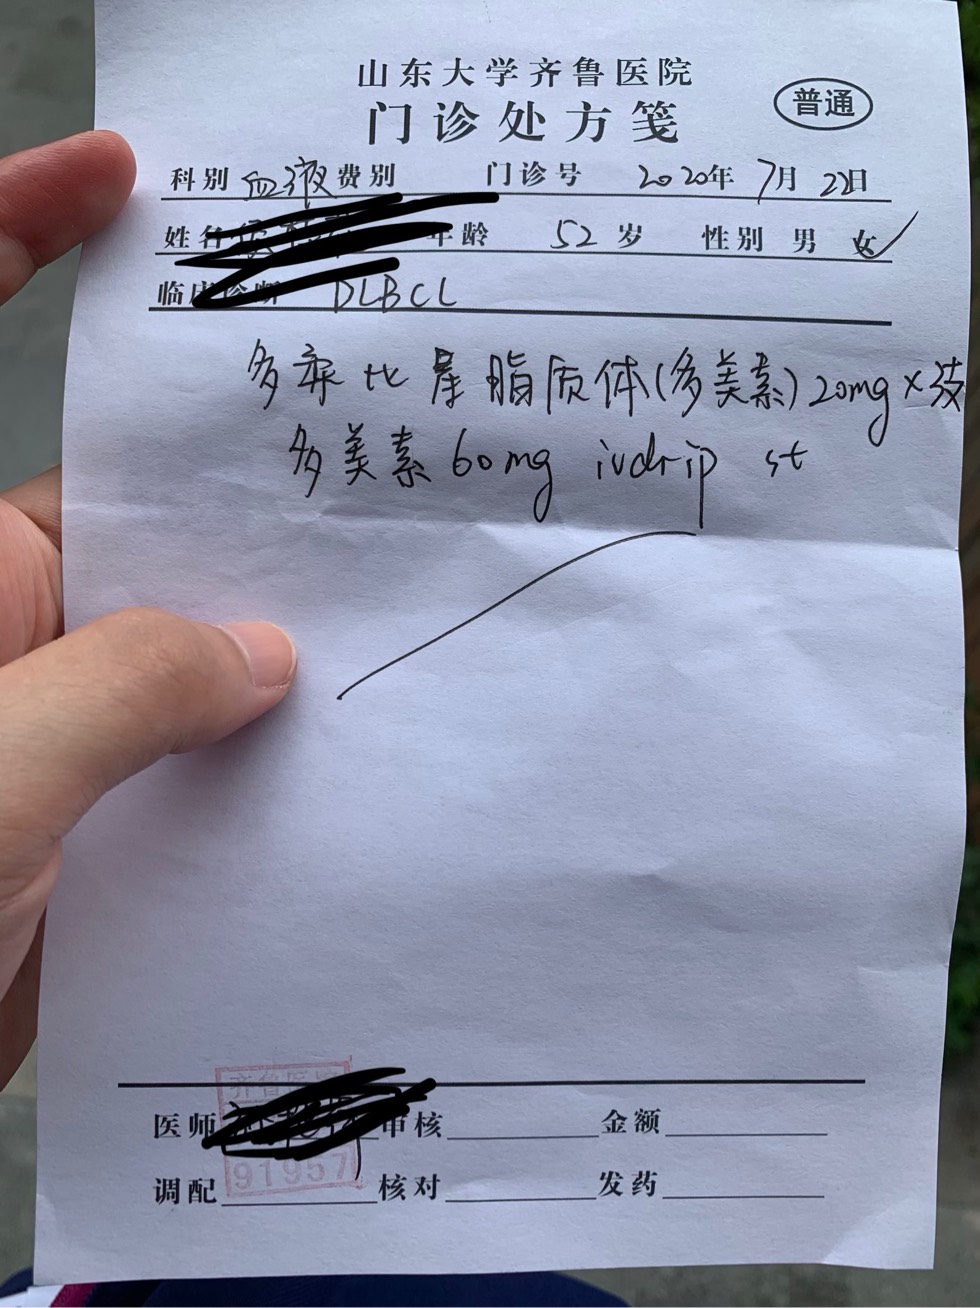 山东大学齐鲁医院
门诊处方笺
普通
科别 血液 费别 门诊号 2020年 7月 22日
姓名 年龄 52 岁 性别 男 女✓
临床诊断 DLBCL
多柔比星脂质体(多美素)20mg×3支
多美素 60mg ivdrip st
齐鲁医院
医师 审核 金额
91957
调配 核对 发药